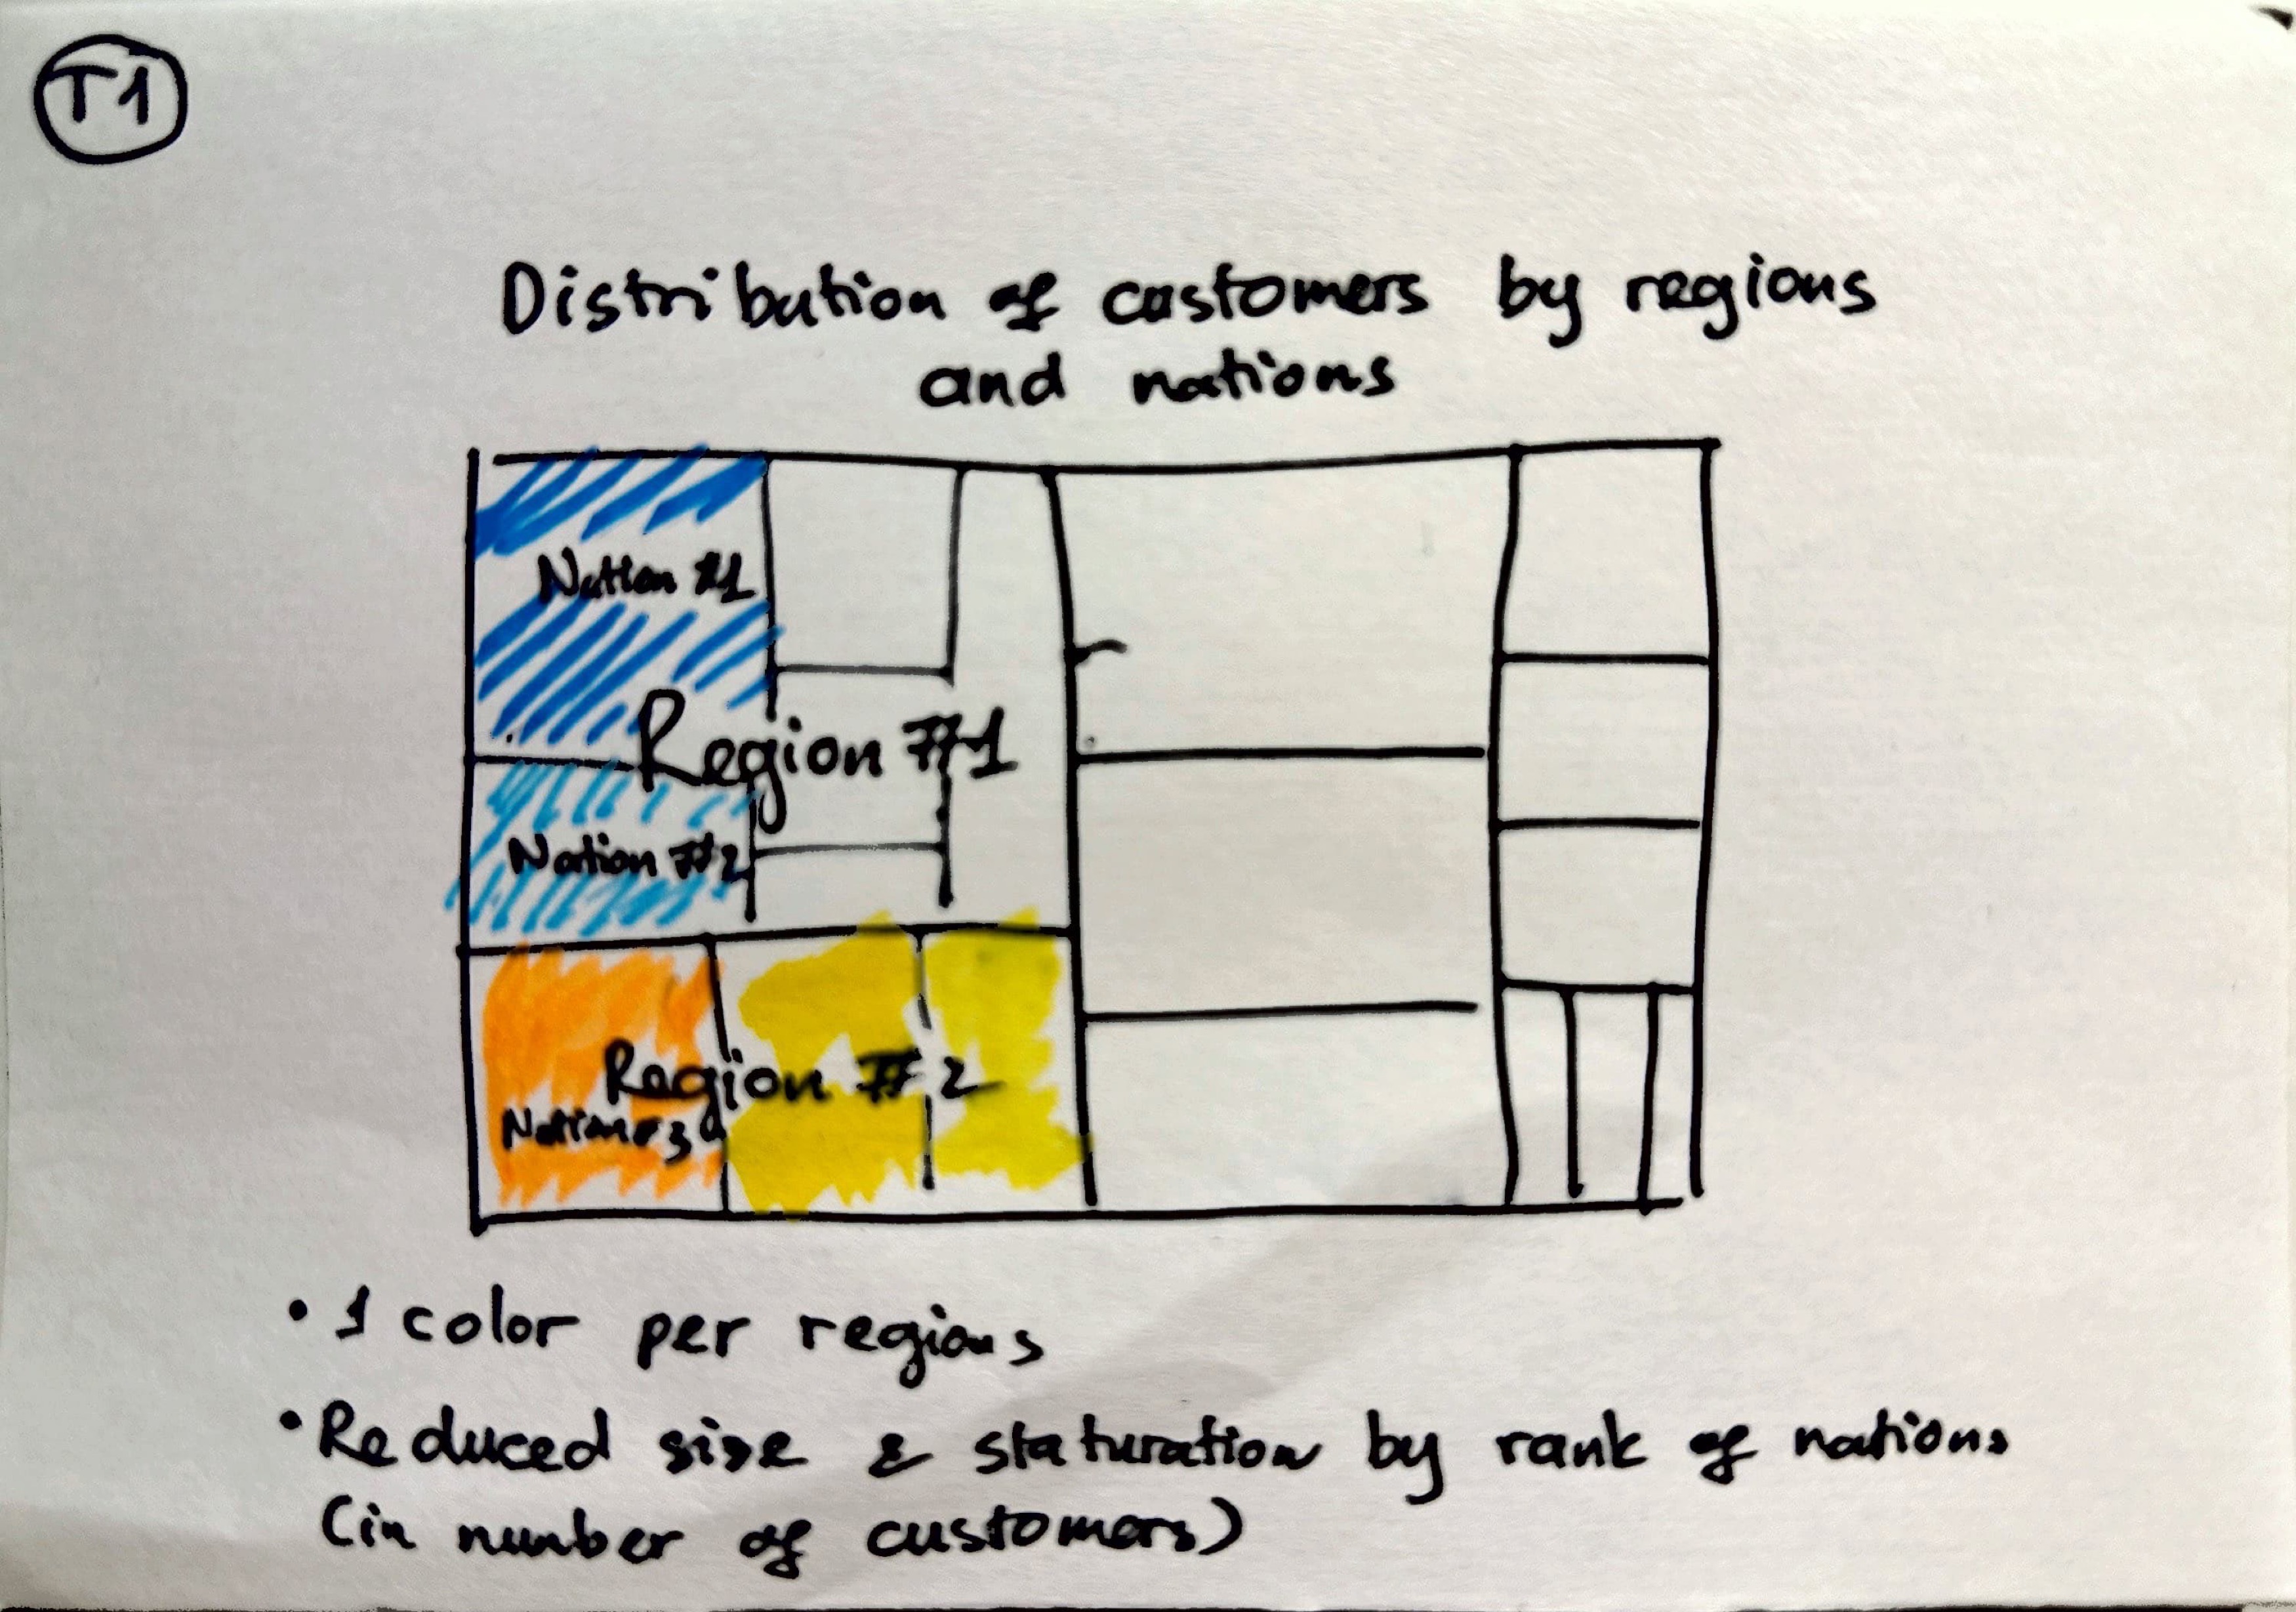 T1
Distribution of customers by regions
and nations
Nation #1
Region #1
Nation #2
Region #2
Nation #3
• 1 color per regions
• Reduced size & staturation by rank of nations
(in number of customers)